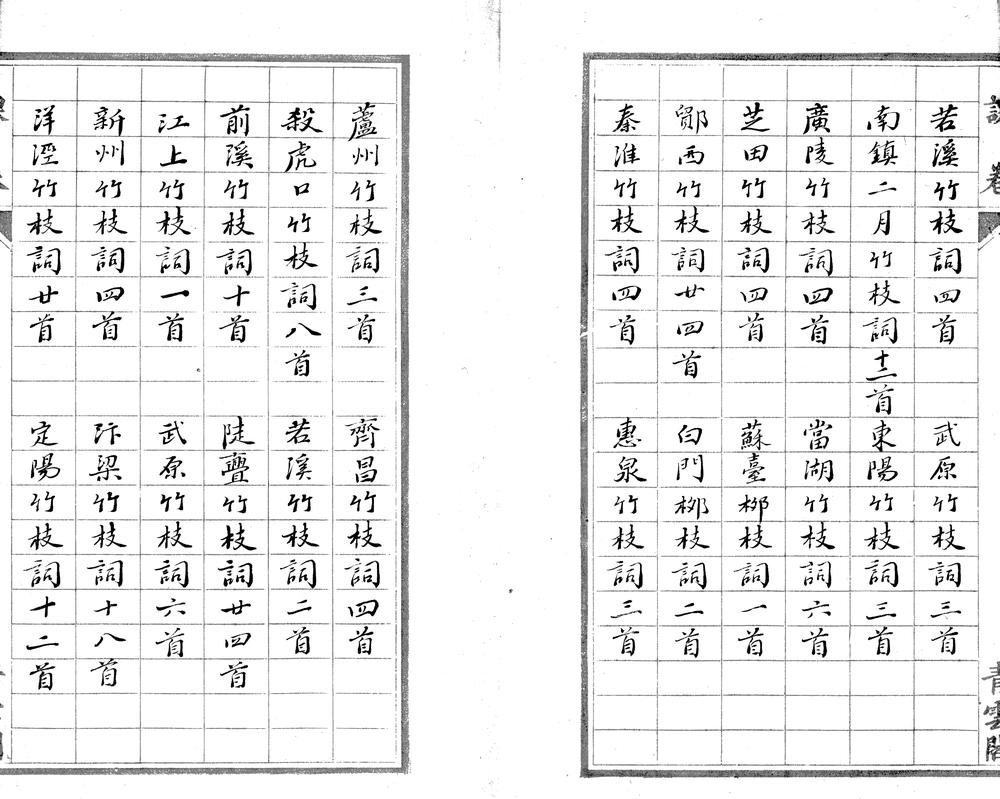 課卷 青雲閣
若溪竹枝詞四首 武原竹枝詞三首
南鎮二月竹枝詞十二首 東陽竹枝詞三首
廣陵竹枝詞四首 當湖竹枝詞六首
芝田竹枝詞四首 蘇臺桞枝詞一首
鄮西竹枝詞廿四首 白門桞枝詞二首
秦淮竹枝詞四首 惠泉竹枝詞三首
蘆州竹枝詞三首 齊昌竹枝詞四首
殺虎口竹枝詞八首 若溪竹枝詞二首
前溪竹枝詞十首 陡亹竹枝詞廿四首
江上竹枝詞一首 武原竹枝詞六首
新州竹枝詞四首 汴梁竹枝詞十八首
洋涇竹枝詞廿首 定陽竹枝詞十二首